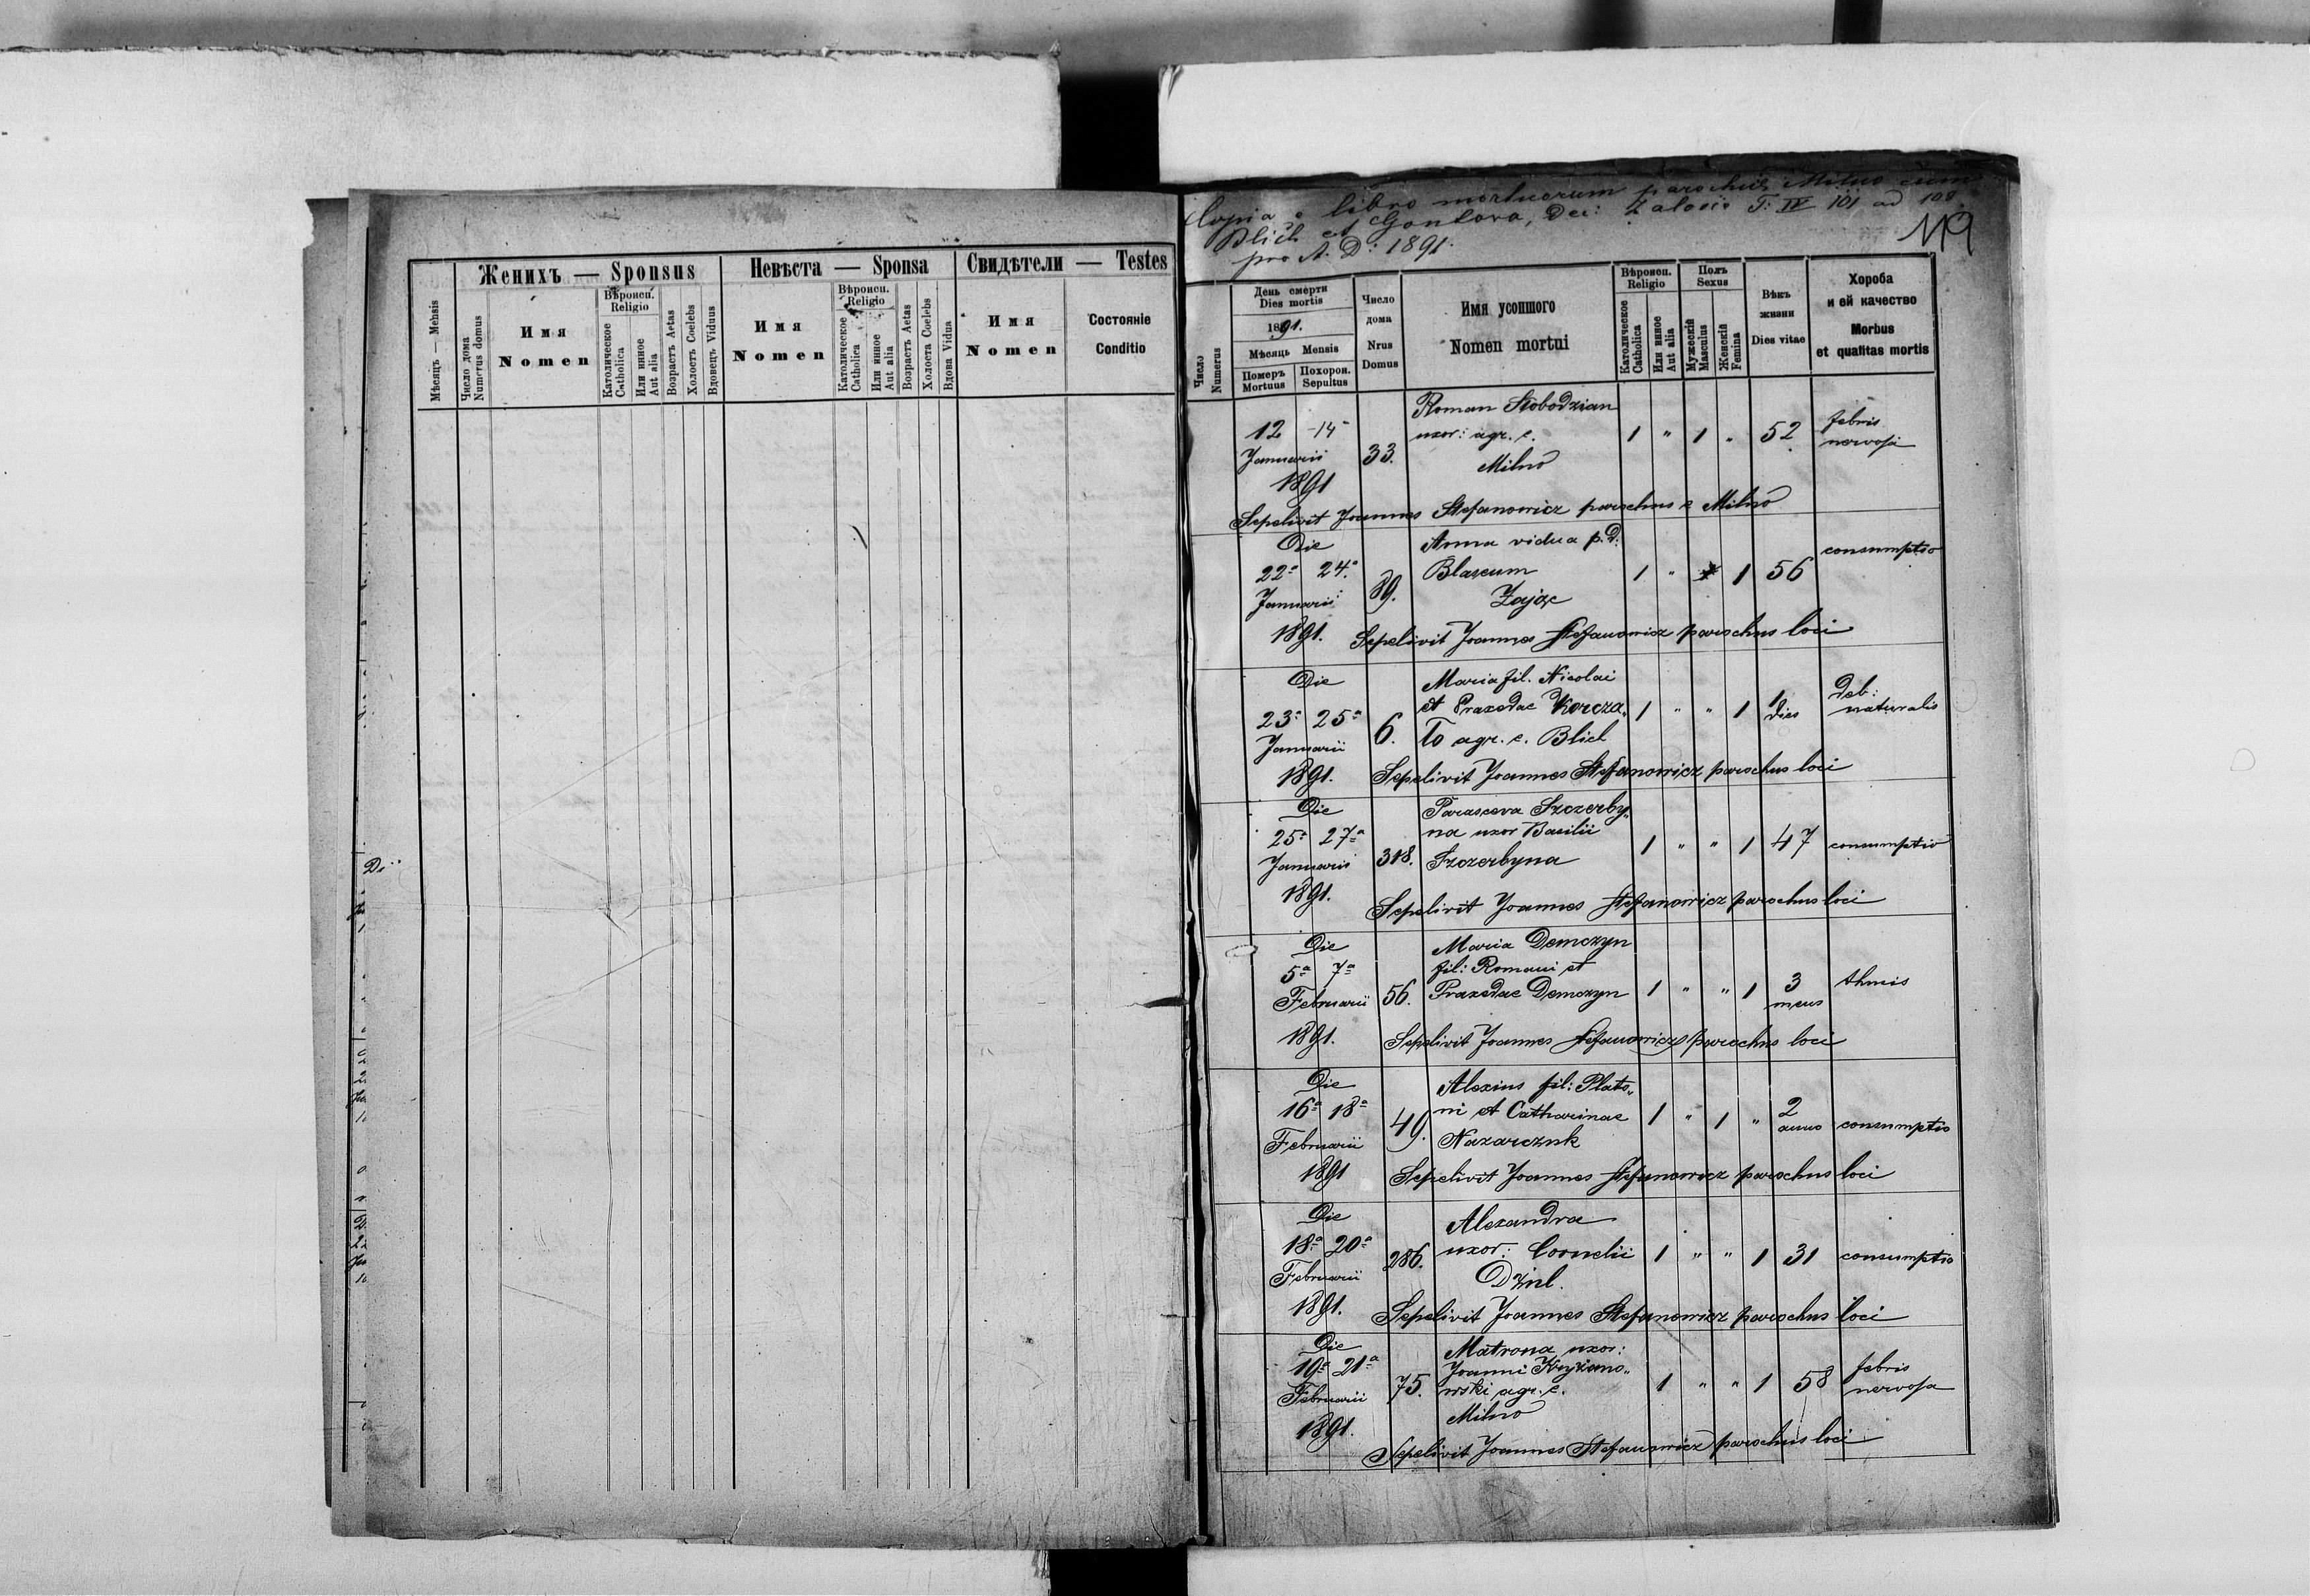 Женихъ — Sponsus
Невѣста — Sponsa
Свидѣтели — Testes
Мѣсяцъ — Mensis
Число дома
Numerus domus
Имя
Nomen
Вѣроисп.
Religio
Католическое
Catholica
Или инное
Aut alia
Возрастъ Aetas
Холостъ Coelebs
Вдовецъ Viduus
Имя
Nomen
Вѣроисп.
Religio
Католическое
Catholica
Или инное
Aut alia
Возрастъ Aetas
Холоста Coelebs
Вдова Vidua
Имя
Nomen
Состояніе
Conditio
Copia e libro mortuorum parochiae Milno cum
Blich et Gontova, Dec: Zalosie T: IV 101 ad 108
pro A. D: 1891.
119
Число
Numerus
День смерти
Dies mortis
1891.
Мѣсяць Mensis
Померъ
Mortuus
Похорон.
Sepultus
Число
дома
Nrus
Domus
Имя усопшого
Nomen mortui
Вѣроисп.
Religio
Католическое
Catholica
Или инное
Aut alia
Полъ
Sexus
Мужескій
Masculus
Женскій
Femina
Вѣкъ
жизни
Dies vitae
Хороба
и ей качество
Morbus
et qualitas mortis
Roman Słobodzian
12 14 uxor: agr. c. 1 " 1 " 52 febris
nervosa
Januarii 33. Milno
1891
Sepelivit Joannes Stefanowicz parochus e Milno
Die Anna vidua p. d. consumptio
22a 24a Blascum 1 " 1 56
Januarii 89. Zając
1891. Sepelivit Joannes Stefanowicz parochus loci
Die Maria fil. Nicolai
23a 25a et Praxedae Korcza„ 1 " " 1 1 dies deb:
naturalis
Januarii 6. to agr. c. Blich
1891. Sepelivit Joannes Stefanowicz parochus loci
Die Parasceva Szczerby„
25a 27a na uxor Basilii 1 " " 1 47 consumptio
Januarii 318. Szczerbyna
1891. Sepelivit Joannes Stefanowicz parochus loci
Die Maria Demczyn
5a 7a fil: Romani et
Februarii 56. Praxedae Demczyn 1 " " 1 3 mens
1891. Sepelivit Joannes Stefanowicz parochus loci
Die Alexius fil: Plato„
16a 18a ni et Catharinae 1 " 1 " 2 anno consumptio
Februarii 49. Nazarczuk
1891 Sepelivit Joannes Stefanowicz parochus loci
Die Alexandra
18a 20a 286. uxor: Cornelii 1 " " 1 31 consumptio
Februarii
1891. Sepelivit Joannes Stefanowicz parochus loci
Die Matrona uxor:
19a 21a Joanni Kryżano„ febris
Februarii 75. wski agr. c. 1 " " 1 58 nervosa
Milno
1891.
Sepelivit Joannes Stefanowicz parochus loci